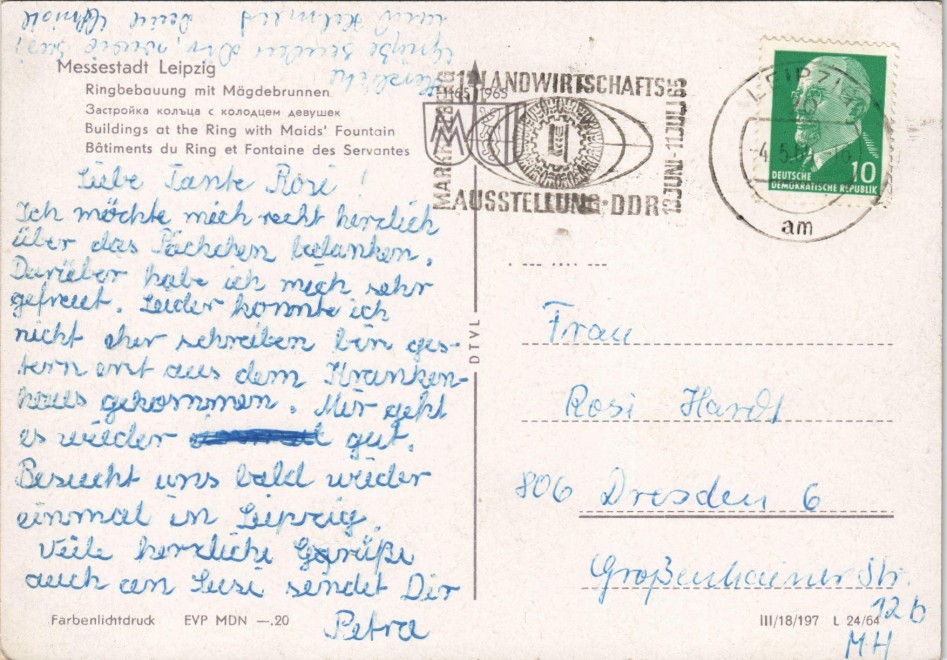 Herzliche
Grüße sendet Dir,
und Helmut
Messestadt Leipzig
Ringbebauung mit Mägdebrunnen
Застройка кольца с колодцем девушек
Buildings at the Ring with Maids' Fountain
Bâtiments du Ring et Fontaine des Servantes
Liebe Tante Rosi!
Ich möchte mich recht herzlich
über das Päckchen bedanken.
Darüber habe ich mich sehr
gefreut. Leider konnte ich
nicht eher schreiben bin ges-
tern erst aus dem Kranken-
haus gekommen. Mir geht
es wieder gut.
Besucht uns bald wieder
einmal in Leipzig.
Viele herzliche Grüße
auch an Susi sendet Dir
Petra
Farbenlichtdruck EVP MDN —.20
DTVL
13. LANDWIRTSCHAFTS
1165 1965
MARKKLEEBERG
AUSSTELLUNG · DDR
13.JUNI - 11.JULI 65
LEIPZIG
am
10
DEUTSCHE
DEMOKRATISCHE REPUBLIK
Frau
Rosi Hardt
806 Dresden 6
Großenhainer Str.
12b
III/18/197 L 24/64
MH